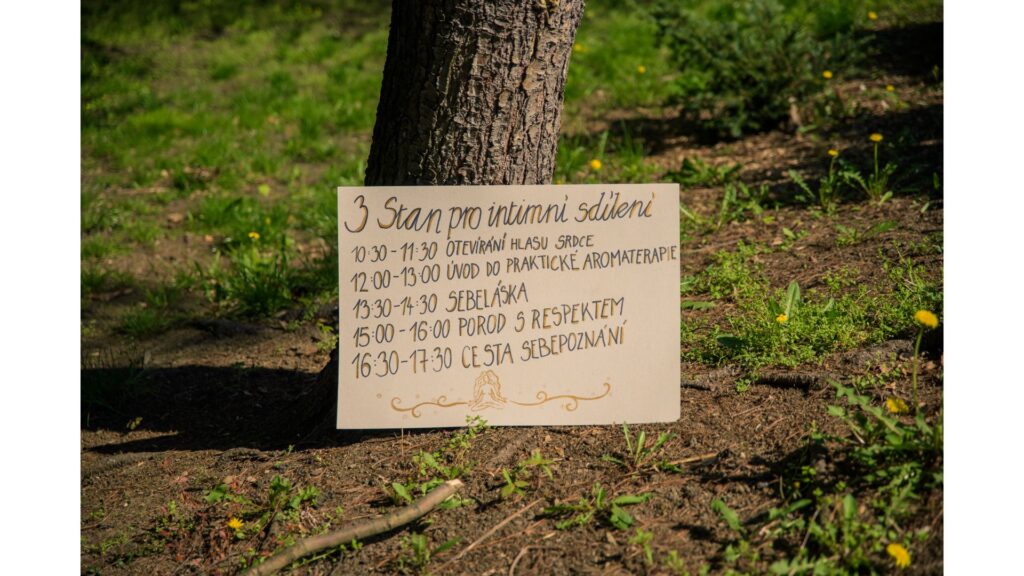 3 Stan pro intimní sdílení
10:30-11:30 OTEVÍRÁNÍ HLASU SRDCE
12:00-13:00 ÚVOD DO PRAKTICKÉ AROMATERAPIE
13:30-14:30 SEBELÁSKA
15:00-16:00 POROD S RESPEKTEM
16:30-17:30 CESTA SEBEPOZNÁNÍ